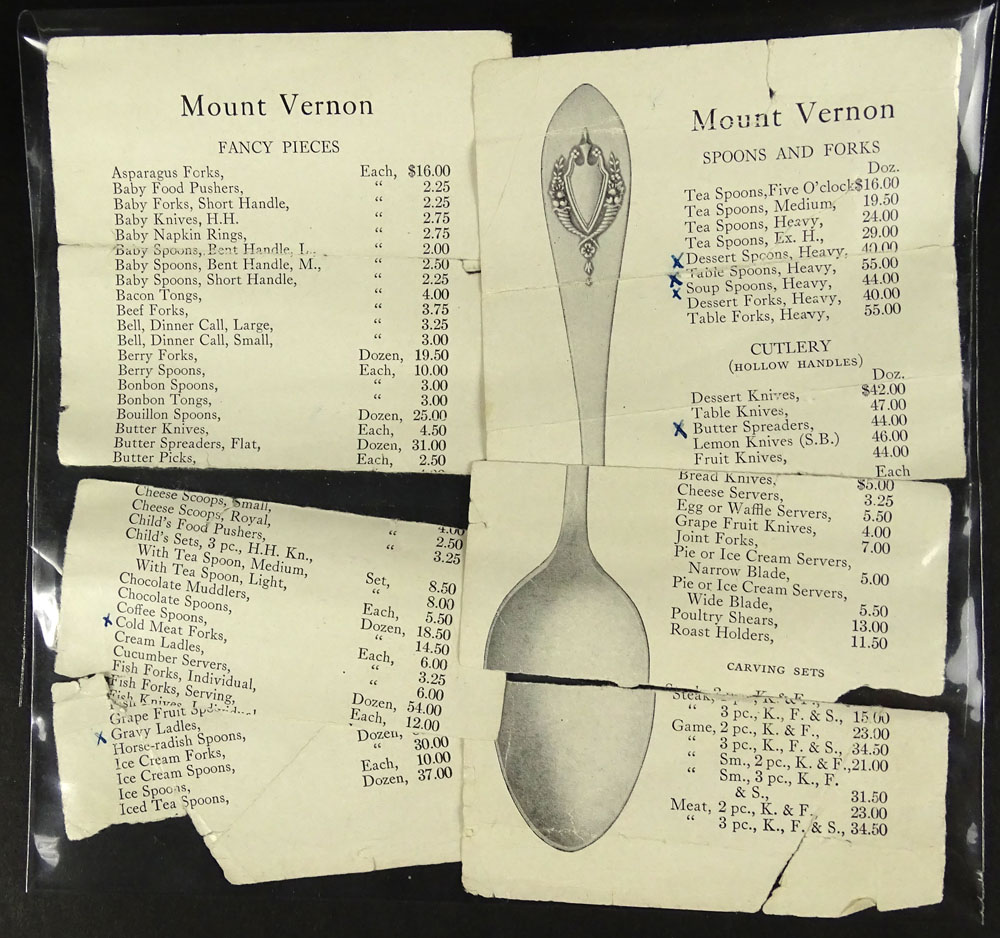 Mount Vernon
FANCY PIECES
Asparagus Forks, Each, $16.00
Baby Food Pushers, “ 2.25
Baby Forks, Short Handle, “ 2.25
Baby Knives, H.H. “ 2.75
Baby Napkin Rings, “ 2.75
Baby Spoons, Bent Handle, L., “ 2.00
Baby Spoons, Bent Handle, M., “ 2.50
Baby Spoons, Short Handle, “ 2.25
Bacon Tongs, “ 4.00
Beef Forks, “ 3.75
Bell, Dinner Call, Large, “ 3.25
Bell, Dinner Call, Small, “ 3.00
Berry Forks, Dozen, 19.50
Berry Spoons, Each, 10.00
Bonbon Spoons, “ 3.00
Bonbon Tongs, “ 3.00
Bouillon Spoons, Dozen, 25.00
Butter Knives, Each, 4.50
Butter Spreaders, Flat, Dozen, 31.00
Butter Picks, Each, 2.50
Cheese Scoops, Small, 4.00
Cheese Scoops, Royal, “ 2.50
Child's Food Pushers, “ 3.25
Child's Sets, 3 pc., H.H. Kn.,
With Tea Spoon, Medium, Set, 8.50
With Tea Spoon, Light, “ 8.00
Chocolate Muddlers, Each, 5.50
Chocolate Spoons, Dozen, 18.50
Coffee Spoons, “ 14.50
x Cold Meat Forks, Each, 6.00
Cream Ladles, “ 3.25
Cucumber Servers, “ 6.00
Fish Forks, Individual, Dozen, 54.00
Fish Forks, Serving, Each, 12.00
Fish Knives,
Grape Fruit
x Gravy Ladles,
Horse-radish Spoons,
Ice Cream Forks, Dozen,
Ice Cream Spoons, “ 30.00
Ice Spoons, Each, 10.00
Iced Tea Spoons, Dozen, 37.00
Mount Vernon
SPOONS AND FORKS
Doz.
Tea Spoons, Five O'clock $16.00
Tea Spoons, Medium, 19.50
Tea Spoons, Heavy, 24.00
Tea Spoons, Ex. H., 29.00
x Dessert Spoons, Heavy, 40.00
x Table Spoons, Heavy, 55.00
x Soup Spoons, Heavy, 44.00
Dessert Forks, Heavy, 40.00
Table Forks, Heavy, 55.00
CUTLERY
(HOLLOW HANDLES)
Doz.
Dessert Knives, $42.00
Table Knives, 47.00
x Butter Spreaders, 44.00
Lemon Knives (S.B.) 46.00
Fruit Knives, 44.00
Each
Bread Knives, $5.00
Cheese Servers, 3.25
Egg or Waffle Servers, 5.50
Grape Fruit Knives, 4.00
Joint Forks, 7.00
Pie or Ice Cream Servers,
Narrow Blade, 5.00
Pie or Ice Cream Servers,
Wide Blade, 5.50
Poultry Shears, 13.00
Roast Holders, 11.50
CARVING SETS
Steak, 2 pc., K. & F.,
“ 3 pc., K., F. & S., 15.00
Game, 2 pc., K. & F., 23.00
“ 3 pc., K., F. & S., 34.50
“ Sm., 2 pc., K. & F., 21.00
“ Sm., 3 pc., K., F.
& S., 31.50
Meat, 2 pc., K. & F. 23.00
“ 3 pc., K., F. & S., 34.50